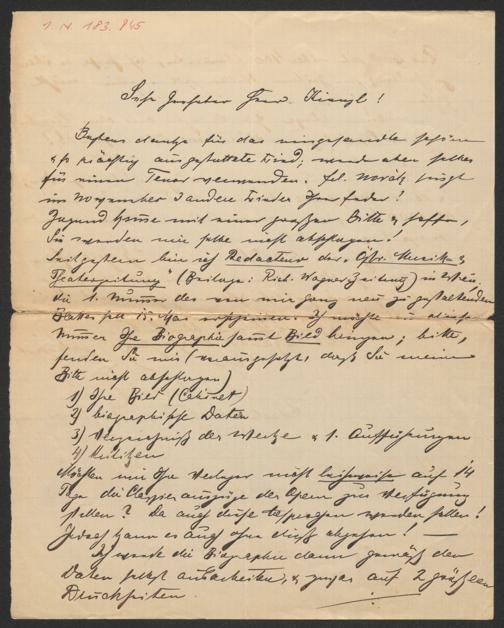 I. N. 183.845
Sehr geehrter Herr Kienzl!
Bestens dankend für das eingesandte schöne
& so prächtig ausgestattete Lied; werde aber selbes
für einen Tenor verwenden. Frl. Novák singt
im November 3 andere Lieder Ihrer Feder!
Zugend komme mit einer großen Bitte & hoffe,
Sie werden mir selbe nicht abschlagen!
Seit gestern bin ich Redacteur der „Östr. Musik- &
Theaterzeitung" (Beilage: Rich. Wagner Zeitung) in Wien,
die 1. Nummer des von mir ganz neu zu gestaltenden
Blattes soll erscheinen. Ich möchte in dieser
Nummer Ihre Biographie sammt Bild bringen; bitte,
senden Sie mir (vorausgesetzt, daß Sie meine
Bitte nicht abschlagen)
1) Ihr Bild (Cabinet)
2) biographische Daten
3) Verzeichniß der Werke & 1. Aufführungen
4) Kritiken
Möchten mir Ihre Verleger nicht leihweise auf 14
Tage die Clavierauszüge der Opern zur Verfügung
stellen? Da auch diese besprochen werden sollen!
Jedoch kann es auch ohne dieß abgehen! —
Ich werde die Biographie dann gemäß den
Daten selbst ausarbeiten, & zwar auf 2 größeren
Druckseiten.